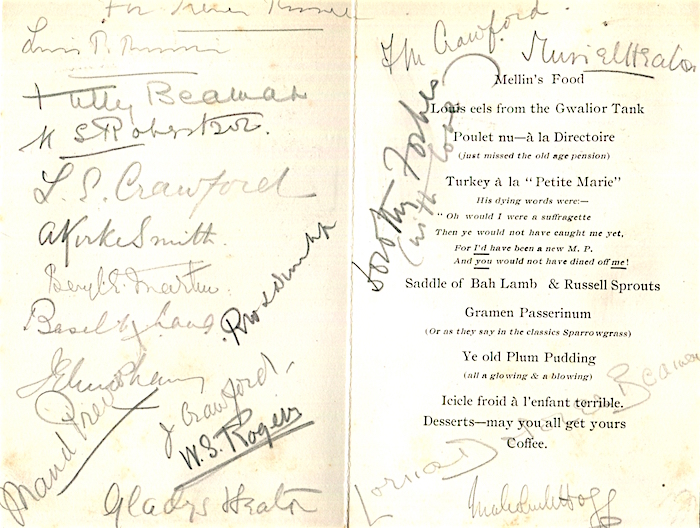 For Trever Russell
Hutty Beaman
S Robertson.
L. S. Crawford
A Kirke Smith.
Beryl E. Martin
J Crawford
W. S. Rogers
Gladys Heaton
Crawford.
Muriel Heaton
Dorothy Forbes
(with love)
Mellin's Food
Louis eels from the Gwalior Tank
Poulet nu—à la Directoire
(just missed the old age pension)
Turkey à la "Petite Marie"
His dying words were:—
"Oh would I were a suffragette
Then ye would not have caught me yet,
For I'd have been a new M. P.
And you would not have dined off me!
Saddle of Bah Lamb & Russell Sprouts
Gramen Passerinum
(Or as they say in the classics Sparrowgrass)
Ye old Plum Pudding
(all a glowing & a blowing)
Icicle froid à l'enfant terrible.
Desserts—may you all get yours
Coffee.
Beaman
Malcolm Hogg